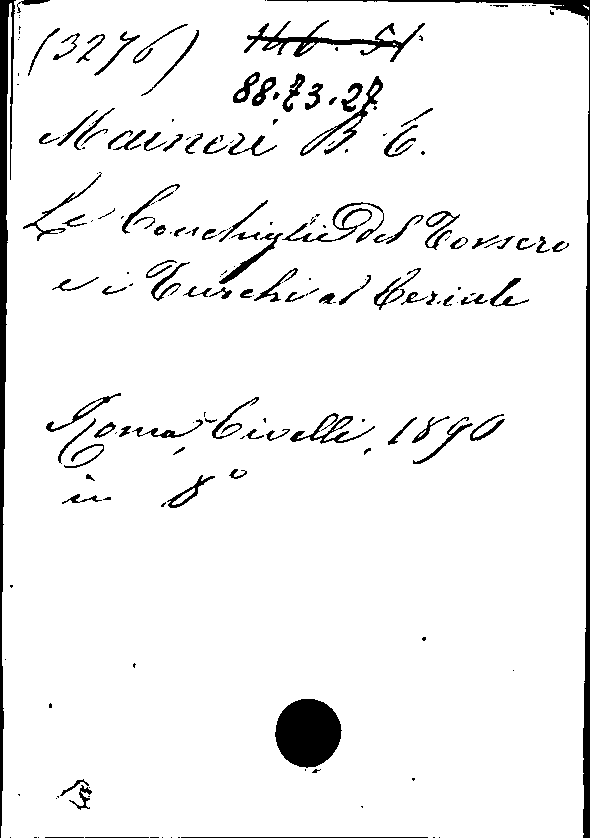 (3276) 146. 51
88.F3.27
Maineri B. E.
Le Conchiglie del Torsero
e i Turchi al Ceriale
Roma, Civelli, 1890
in 8°